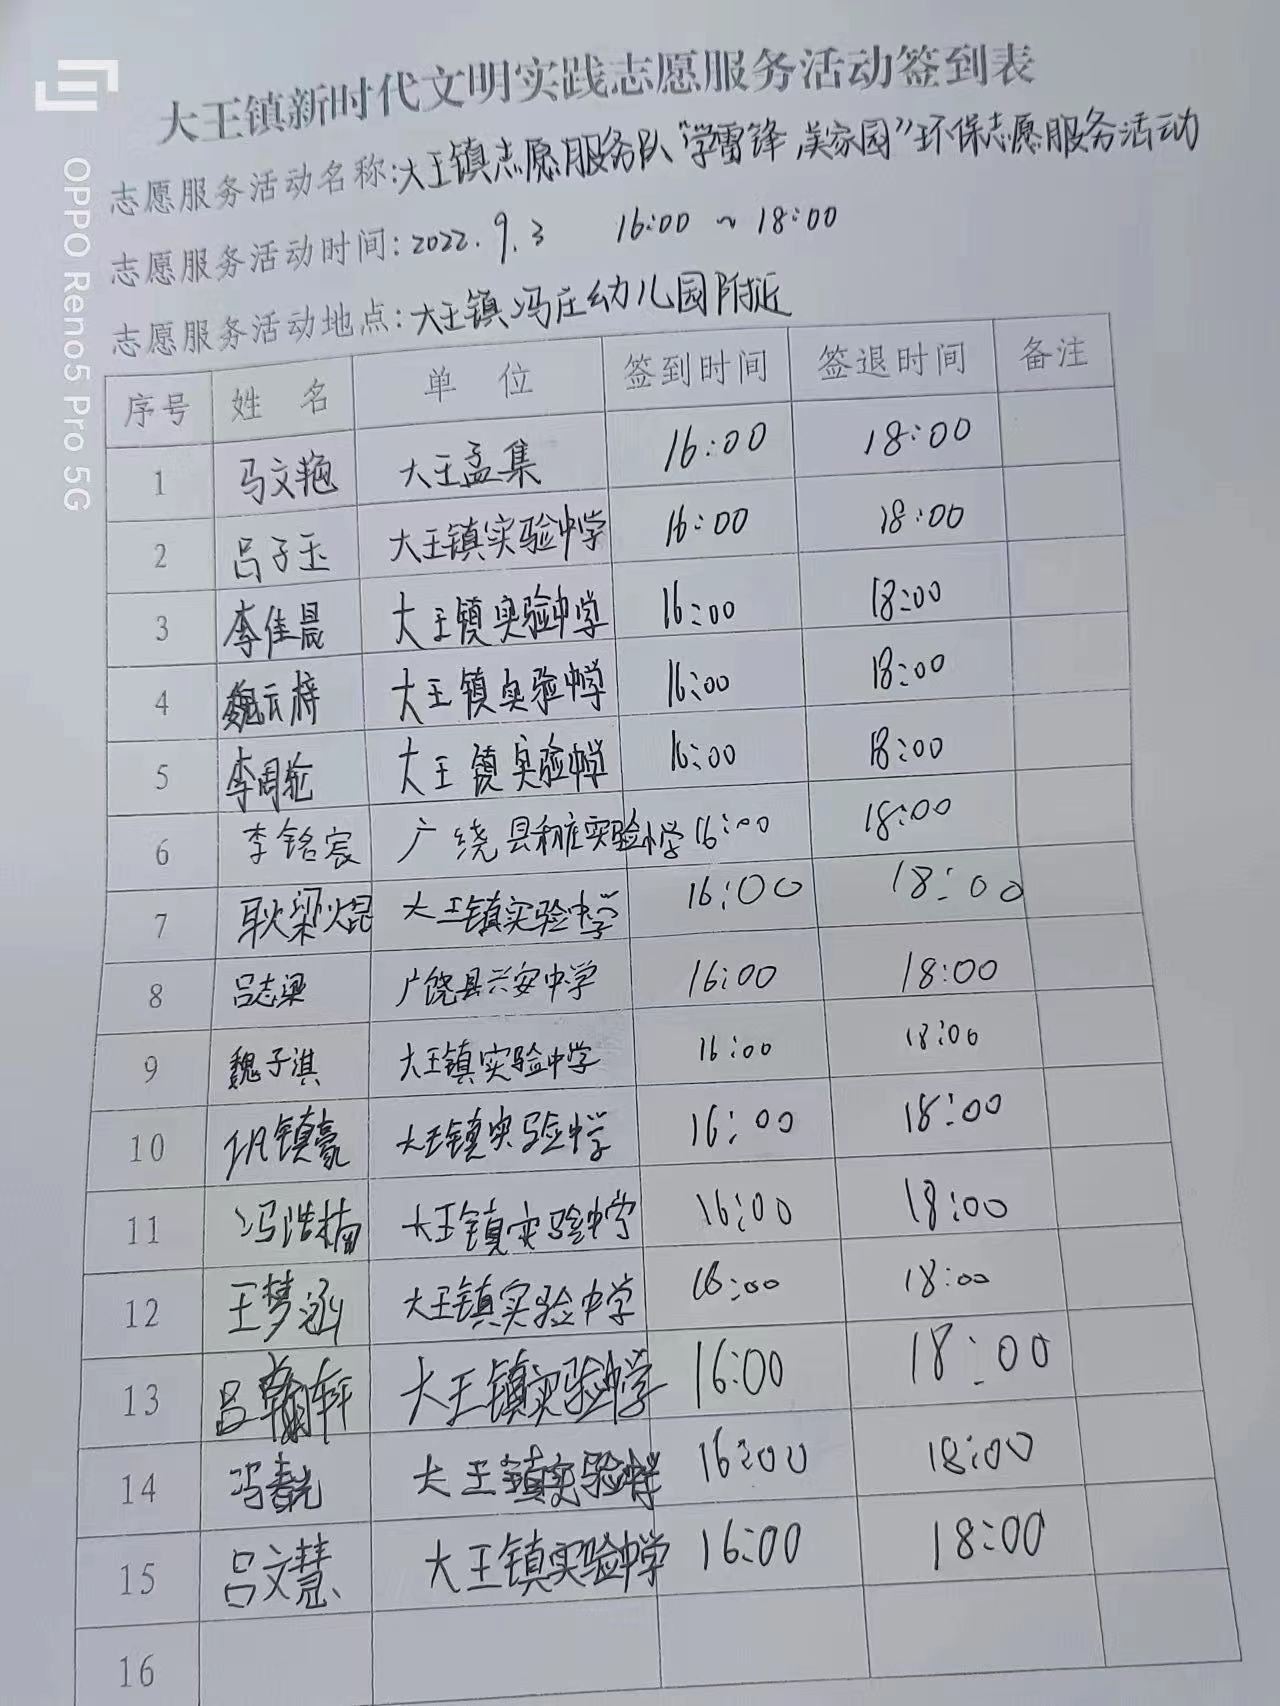 大王镇新时代文明实践志愿服务活动签到表
志愿服务活动名称:大王镇志愿服务队“学雷锋,美家园”环保志愿服务活动
志愿服务活动时间:2022.9.3 16:00 ~ 18:00
志愿服务活动地点:大王镇冯庄幼儿园附近
序号 姓名 单位 签到时间 签退时间 备注
1 马文艳 大王孟集 16:00 18:00
2 吕子玉 大王镇实验中学 16:00 18:00
3 李佳晨 大王镇实验中学 16:00 18:00
4 魏云梓 大王镇实验中学 16:00 18:00
5 李周 大王镇实验中学 16:00 18:00
6 李铭宸 广绕县 实验小学 16:00 18:00
7 耿梁焜 大王镇实验中学 16:00 18:00
8 吕志梁 广饶县兴安中学 16:00 18:00
9 魏子淇 大王镇实验中学 16:00 18:00
10 巩镇豪 大王镇实验中学 16:00 18:00
11 冯浩楠 大王镇实验中学 16:00 18:00
12 王梦涵 大王镇实验中学 16:00 18:00
13 吕翰轩 大王镇实验中学 16:00 18:00
14 冯 大王镇实验中学 16:00 18:00
15 吕文慧 大王镇实验中学 16:00 18:00
16
OPPO Reno5 Pro 5G